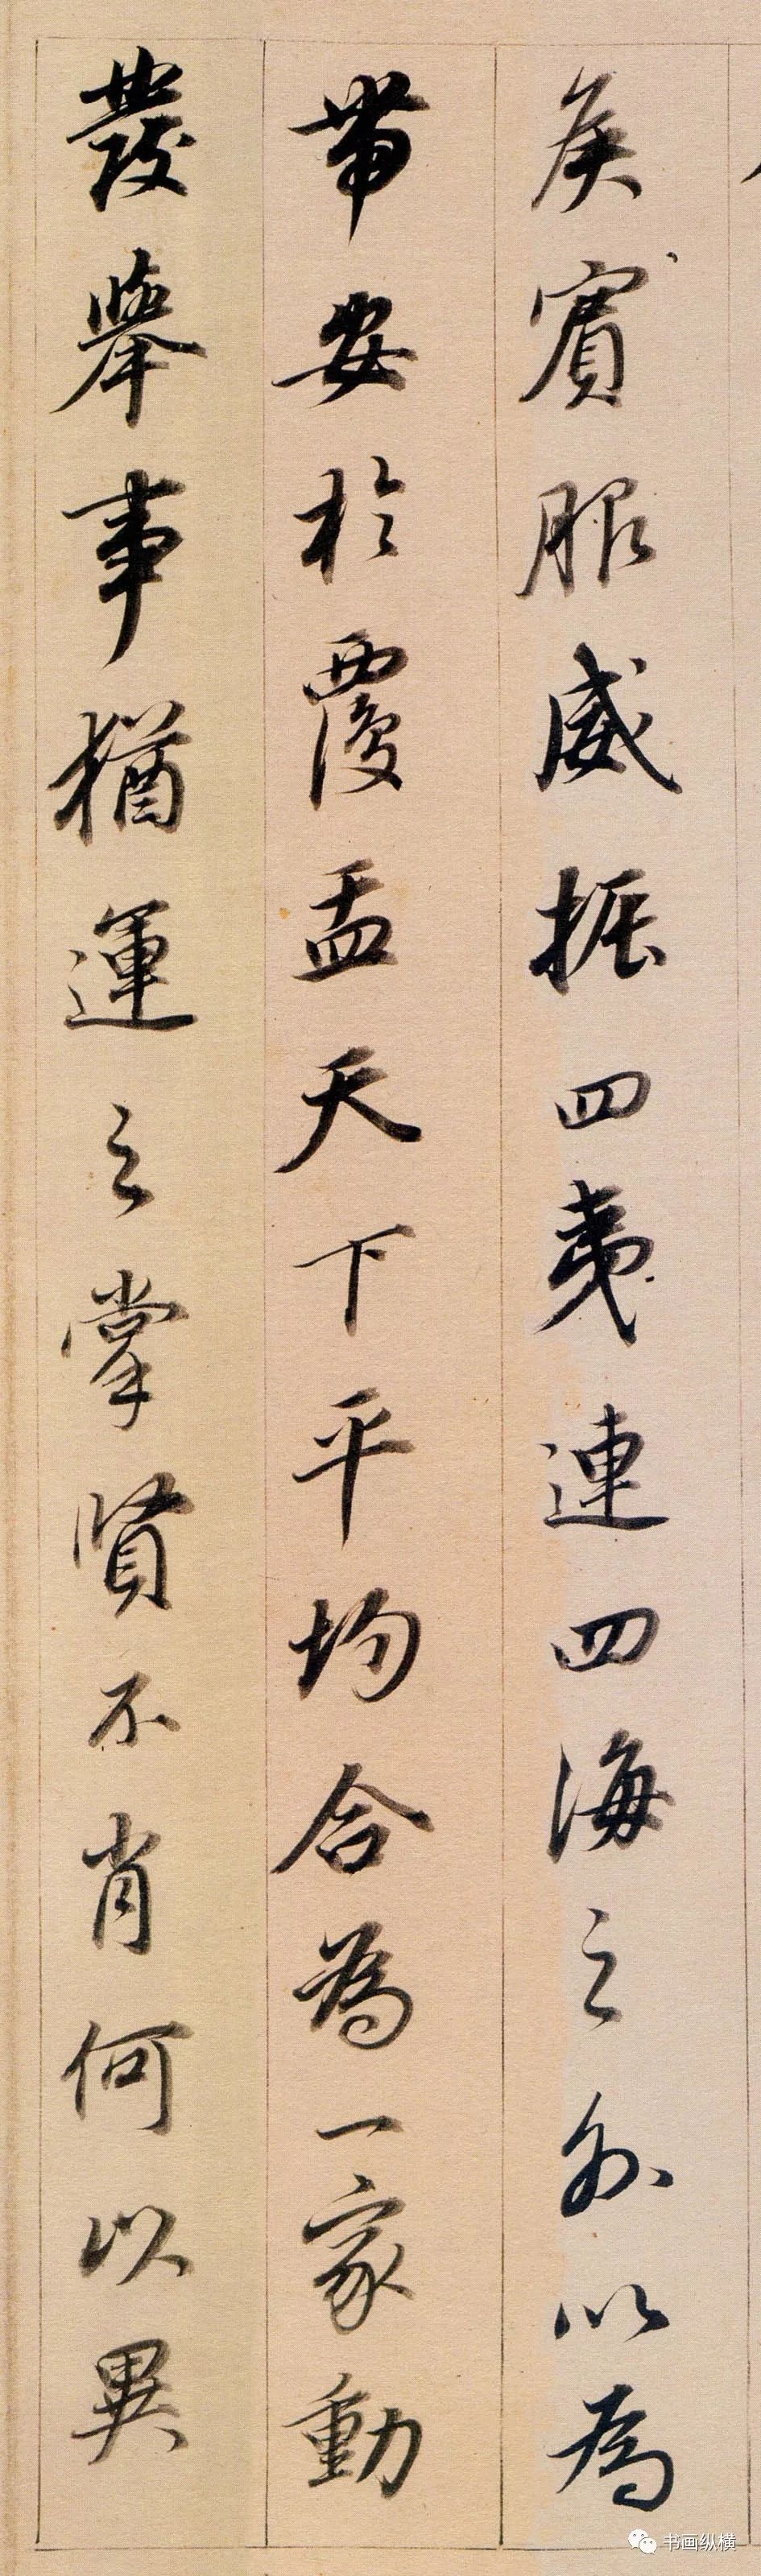 侯賓服威振四夷連四海之外以為
帶安於覆盂天下平均合為一家動
發舉事猶運之掌賢不肖何以異
书画纵横